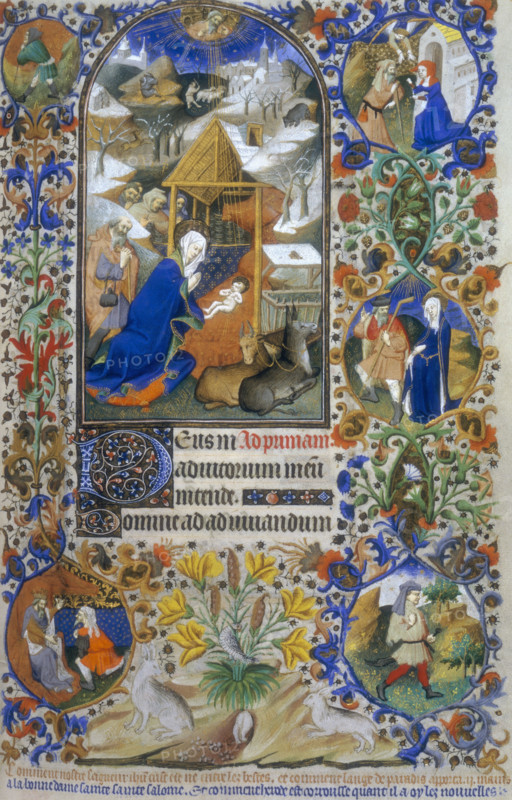 Deus in Ad primam.
adiutorium meū
intende.
Domine ad adiuuandum
Comment nostre seigneur ihūcrist est ne entre les bestes. et comment lange de paradis apporta .ij. mains
a la bonne dame sainte sainte salome. Et comment herode est courousse quant il a oy les nouuelles